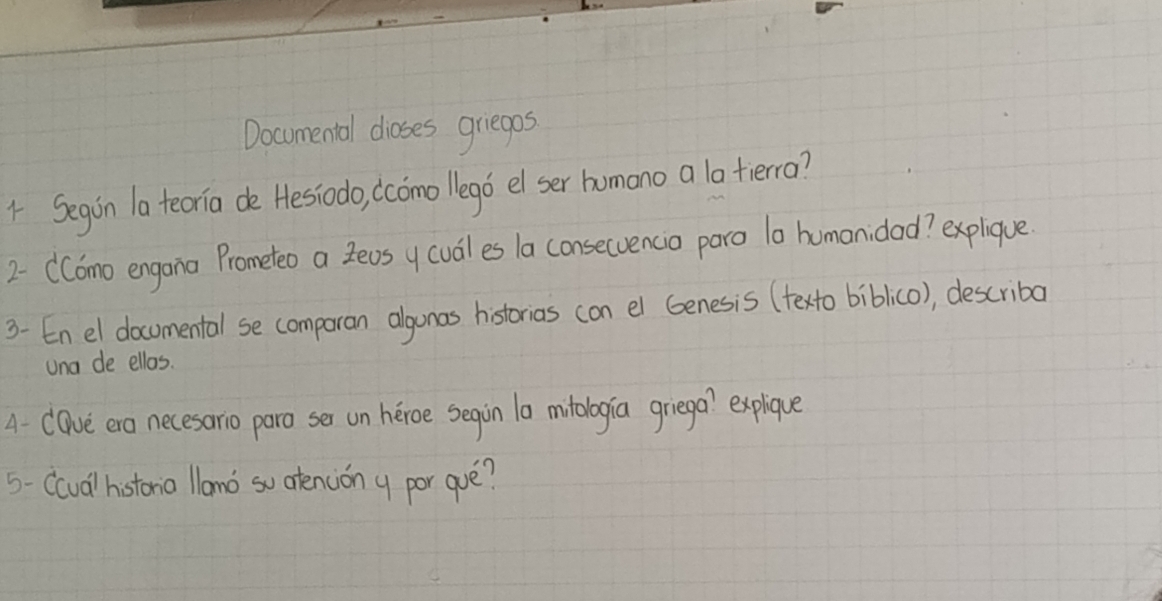 Documental dioses griegos.
1- Según la teoría de Hesíodo, ¿cómo llegó el ser humano a la tierra?
2- ¿Cómo engaña Prometeo a Zeus y cuál es la consecuencia para la humanidad? explique.
3- En el documental se comparan algunas historias con el Genesis (texto bíblico), describa
una de ellas.
4- ¿Qué era necesario para ser un héroe según la mitología griega? explique
5- ¿cuál historia llamó su atención y por qué?